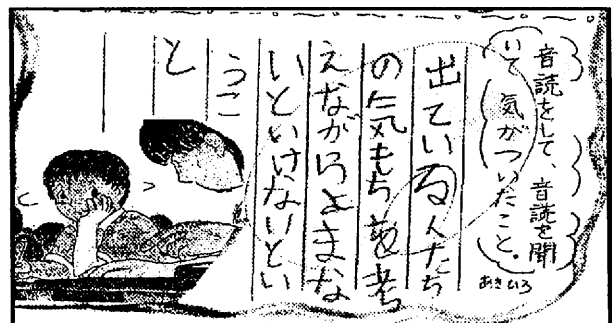 音読をして、音読を聞
いて気がついたこと。
あきひろ
出ている人たち
の気もちを考
えながらよまな
いといけないとい
うこ
と